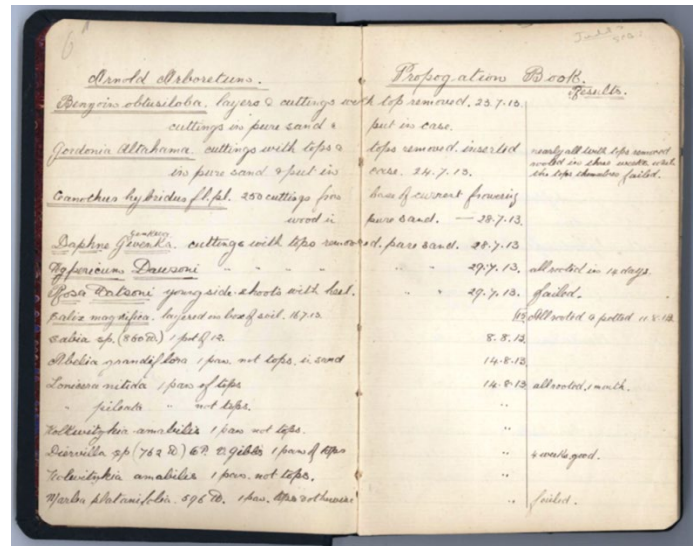 6
Judd's
1913.
Arnold Arboretum. Propogation Book.
Results.
Benzoin obtusiloba. layers & cuttings with top removed. 23.7.13.
cuttings in pure sand & put in case.
Gordonia Altahama. cuttings with tops & tops removed inserted
in pure sand & put in case. 24.7.13.
nearly all with tops removed
rooted in three weeks whilst
the tops themselves failed.
Ceanothus hybridus fl. pl. 250 cuttings from base of current flowering
wood in pure sand. — 28.7.13
Daphne Genkwa. cuttings with tops removed, pure sand. 28.7.13.
Hypericum Dawsoni " " " " " " 29.7.13. all rooted in 14 days.
Rosa Watsoni young side-shoots with heel. 29.7.13. failed.
Salix magnifica. layered in box of soil. 16.7.13. All rooted & potted 11.8.13.
Sabia sp. (860 W) 1 pot of 12. 8.8.13.
Abelia grandiflora 1 pan. not tops. in sand 14.8.13.
Lonicera nitida 1 pan of tops 14.8.13 all rooted. 1 month.
" pileata " not tops. "
Kolkwitzia amabilis 1 pan not tops. "
Diervilla sp (762 W) 1 pan of tops " 4 weeks, good.
Kolwitzkia amabiles 1 pan. not tops. "
Marlea platanifolia. 596 W. 1 pan. " failed.